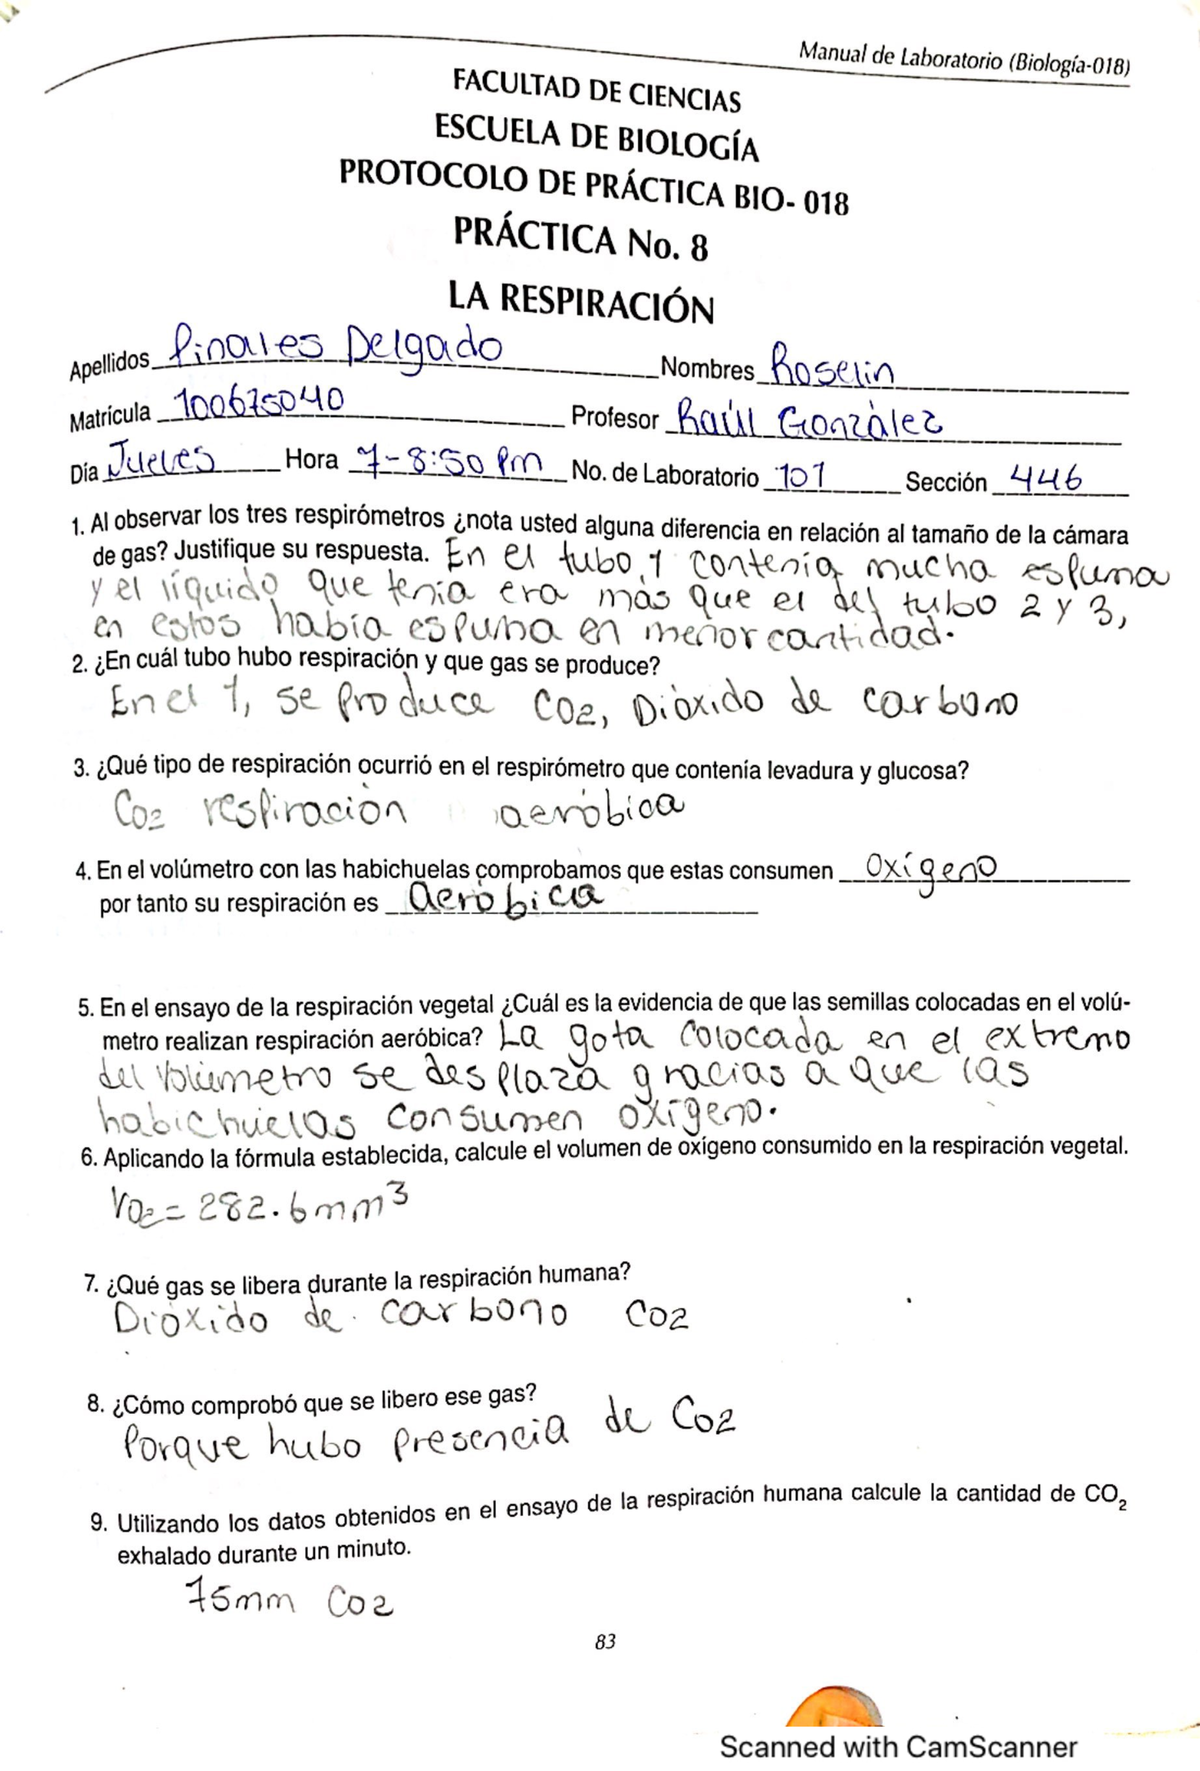 Manual de Laboratorio (Biología-018)
FACULTAD DE CIENCIAS
ESCUELA DE BIOLOGÍA
PROTOCOLO DE PRÁCTICA BIO- 018
PRÁCTICA No. 8
LA RESPIRACIÓN
Apellidos Pinales Delgado Nombres Roselin
Matrícula 100675040 Profesor Raúl González
Día Jueves Hora 7-8:50 Pm No. de Laboratorio 101 Sección 446
1. Al observar los tres respirómetros ¿nota usted alguna diferencia en relación al tamaño de la cámara
de gas? Justifique su respuesta. En el tubo 1 contenía mucha espuma
y el líquido que tenía era más que el del tubo 2 y 3,
en estos había espuma en menor cantidad.
2. ¿En cuál tubo hubo respiración y que gas se produce?
En el 1, se produce CO2, Dióxido de carbono
3. ¿Qué tipo de respiración ocurrió en el respirómetro que contenía levadura y glucosa?
Co2 respiración aeróbica
4. En el volúmetro con las habichuelas comprobamos que estas consumen oxígeno
por tanto su respiración es aeróbica
5. En el ensayo de la respiración vegetal ¿Cuál es la evidencia de que las semillas colocadas en el volú-
metro realizan respiración aeróbica? La gota colocada en el extremo
del volúmetro se desplaza gracias a que las
habichuelas consumen oxígeno.
6. Aplicando la fórmula establecida, calcule el volumen de oxígeno consumido en la respiración vegetal.
VO2 = 282.6mm³
7. ¿Qué gas se libera durante la respiración humana?
Dióxido de carbono CO2
8. ¿Cómo comprobó que se libero ese gas?
Porque hubo presencia de CO2
9. Utilizando los datos obtenidos en el ensayo de la respiración humana calcule la cantidad de CO₂
exhalado durante un minuto.
75mm CO2
83
Scanned with CamScanner